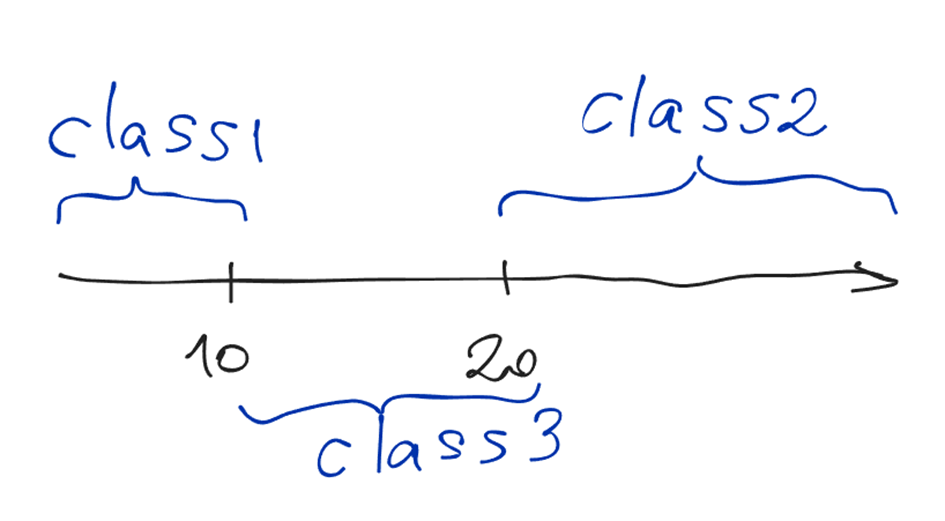 class1 class2
10 20
class3